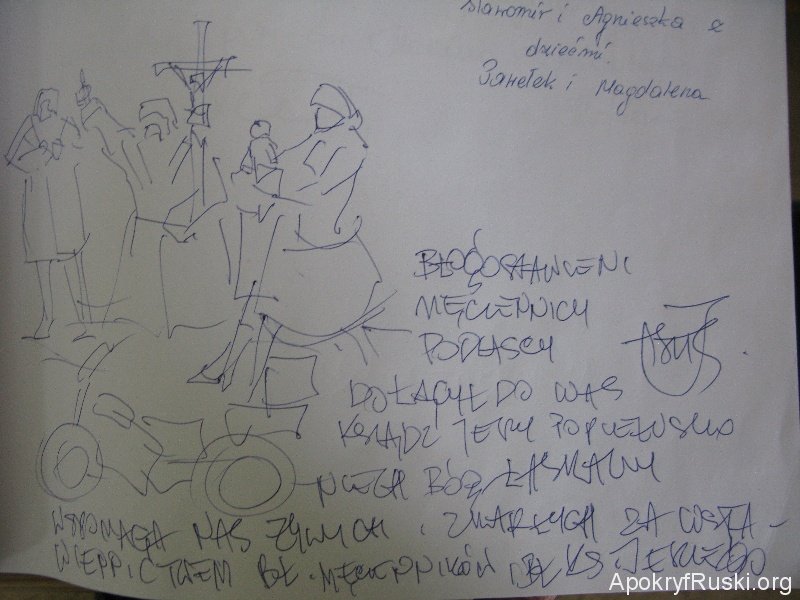 Sławomir i Agnieszka z
dziećmi.
Pawełek i Magdalena
BŁOGOSŁAWIENI
MĘCZENNICY
PODLASCY
DOŁĄCZYŁ DO WAS
KSIĄDZ JERZY POPIEŁUSZKO
NIECH BÓG ŁASKAWY
WSPOMAGA NAS ŻYWYCH I ZMARŁYCH ZA WSTA-
WIENNICTWEM BŁ. MĘCZENNIKÓW I BŁ KS JERZEGO
ApokryfRuski.org